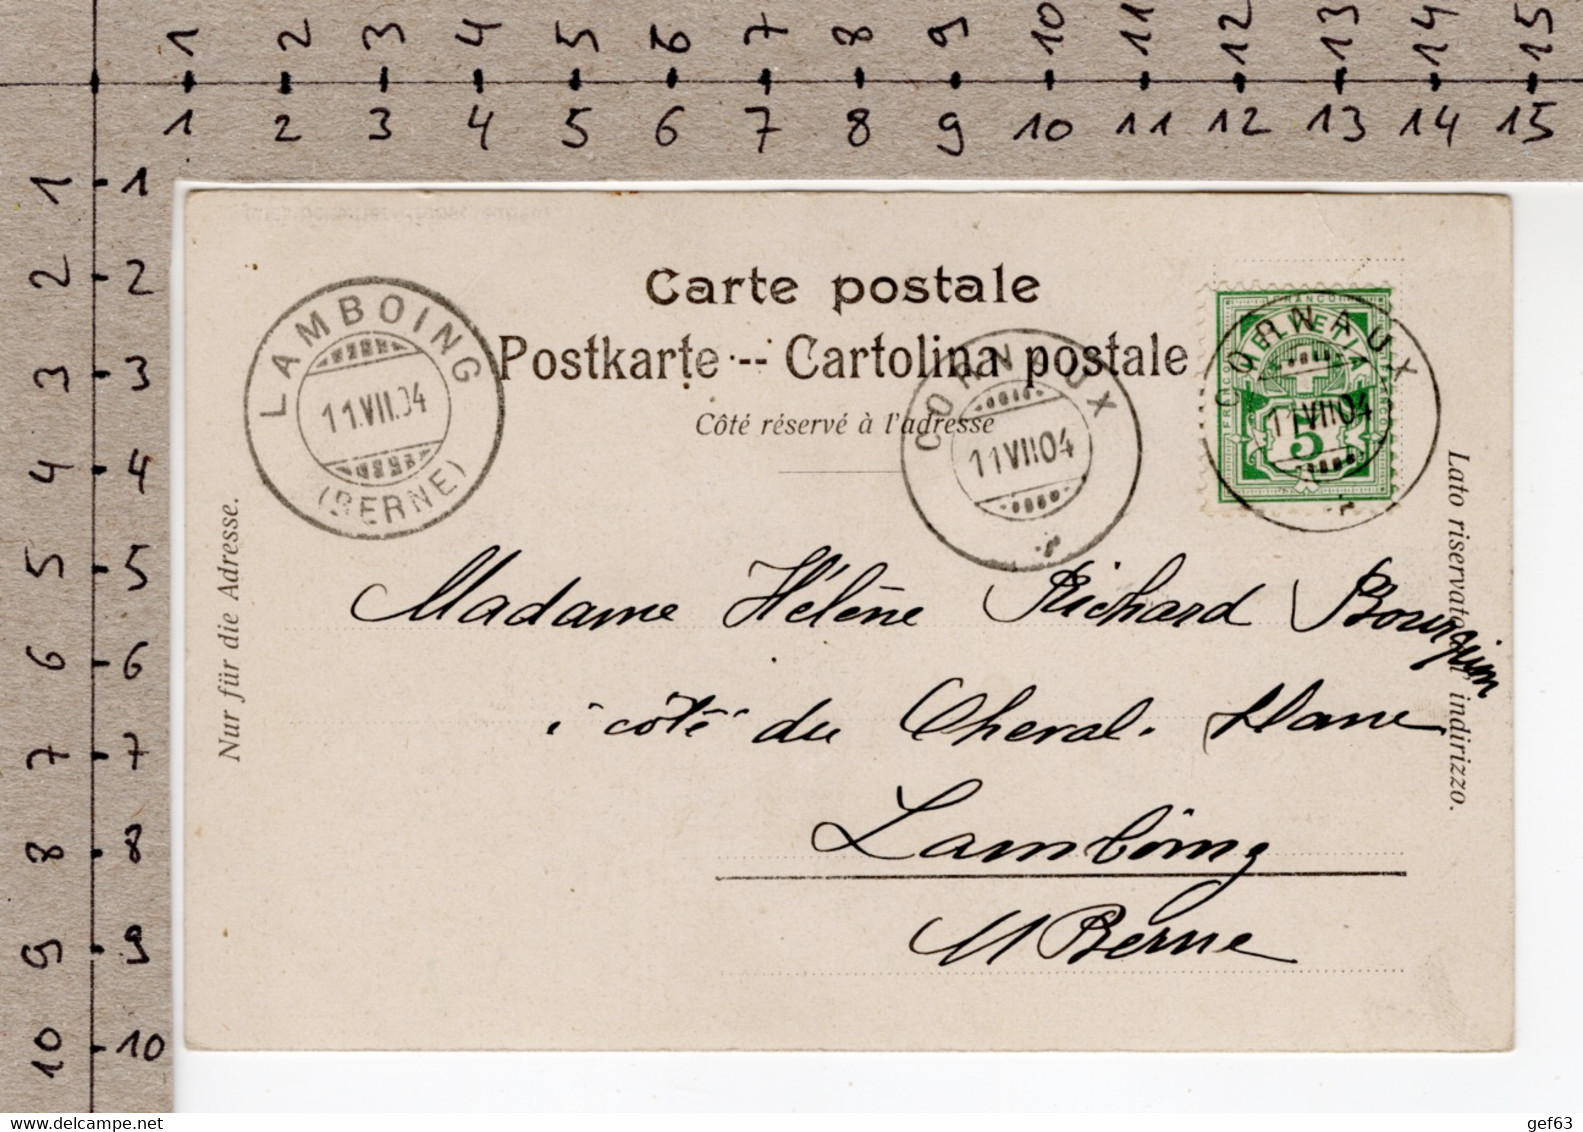 1 2 3 4 5 6 7 8 9 10 11 12 13 14 15
1 2 3 4 5 6 7 8 9 10 11 12 13 14 15
1 1
2 2
3 3
4 4
5 5
6 6
7 7
8 8
9 9
10 10
Carte postale
Postkarte -- Cartolina postale
Côté réservé à l'adresse
LAMBOING
11.VII.04
(BERNE)
CORNAUX
11 VII 04
CORNAUX
11 VII 04
FRANCO
HELVETIA
5
Nur für die Adresse.
Lato riservato indirizzo.
Madame Hélène Richard Bourquin
côté du Cheval-
Lamboing
Berne
delcampe.net
gef63